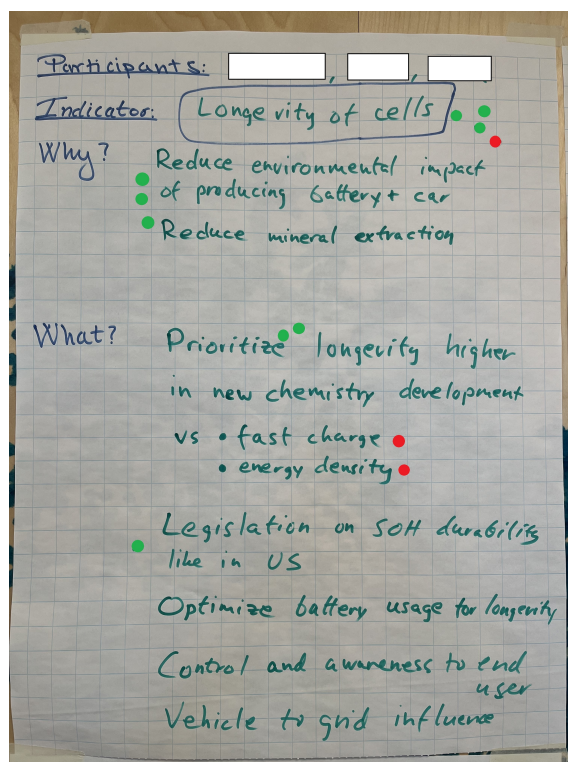 Participants: , ,
Indicator: Longevity of cells
Why? Reduce environmental impact
of producing battery + car
Reduce mineral extraction
What? Prioritize longevity higher
in new chemistry development
vs • fast charge
• energy density
Legislation on SOH durability
like in US
Optimize battery usage for longevity
Control and awareness to end
user
Vehicle to grid influence